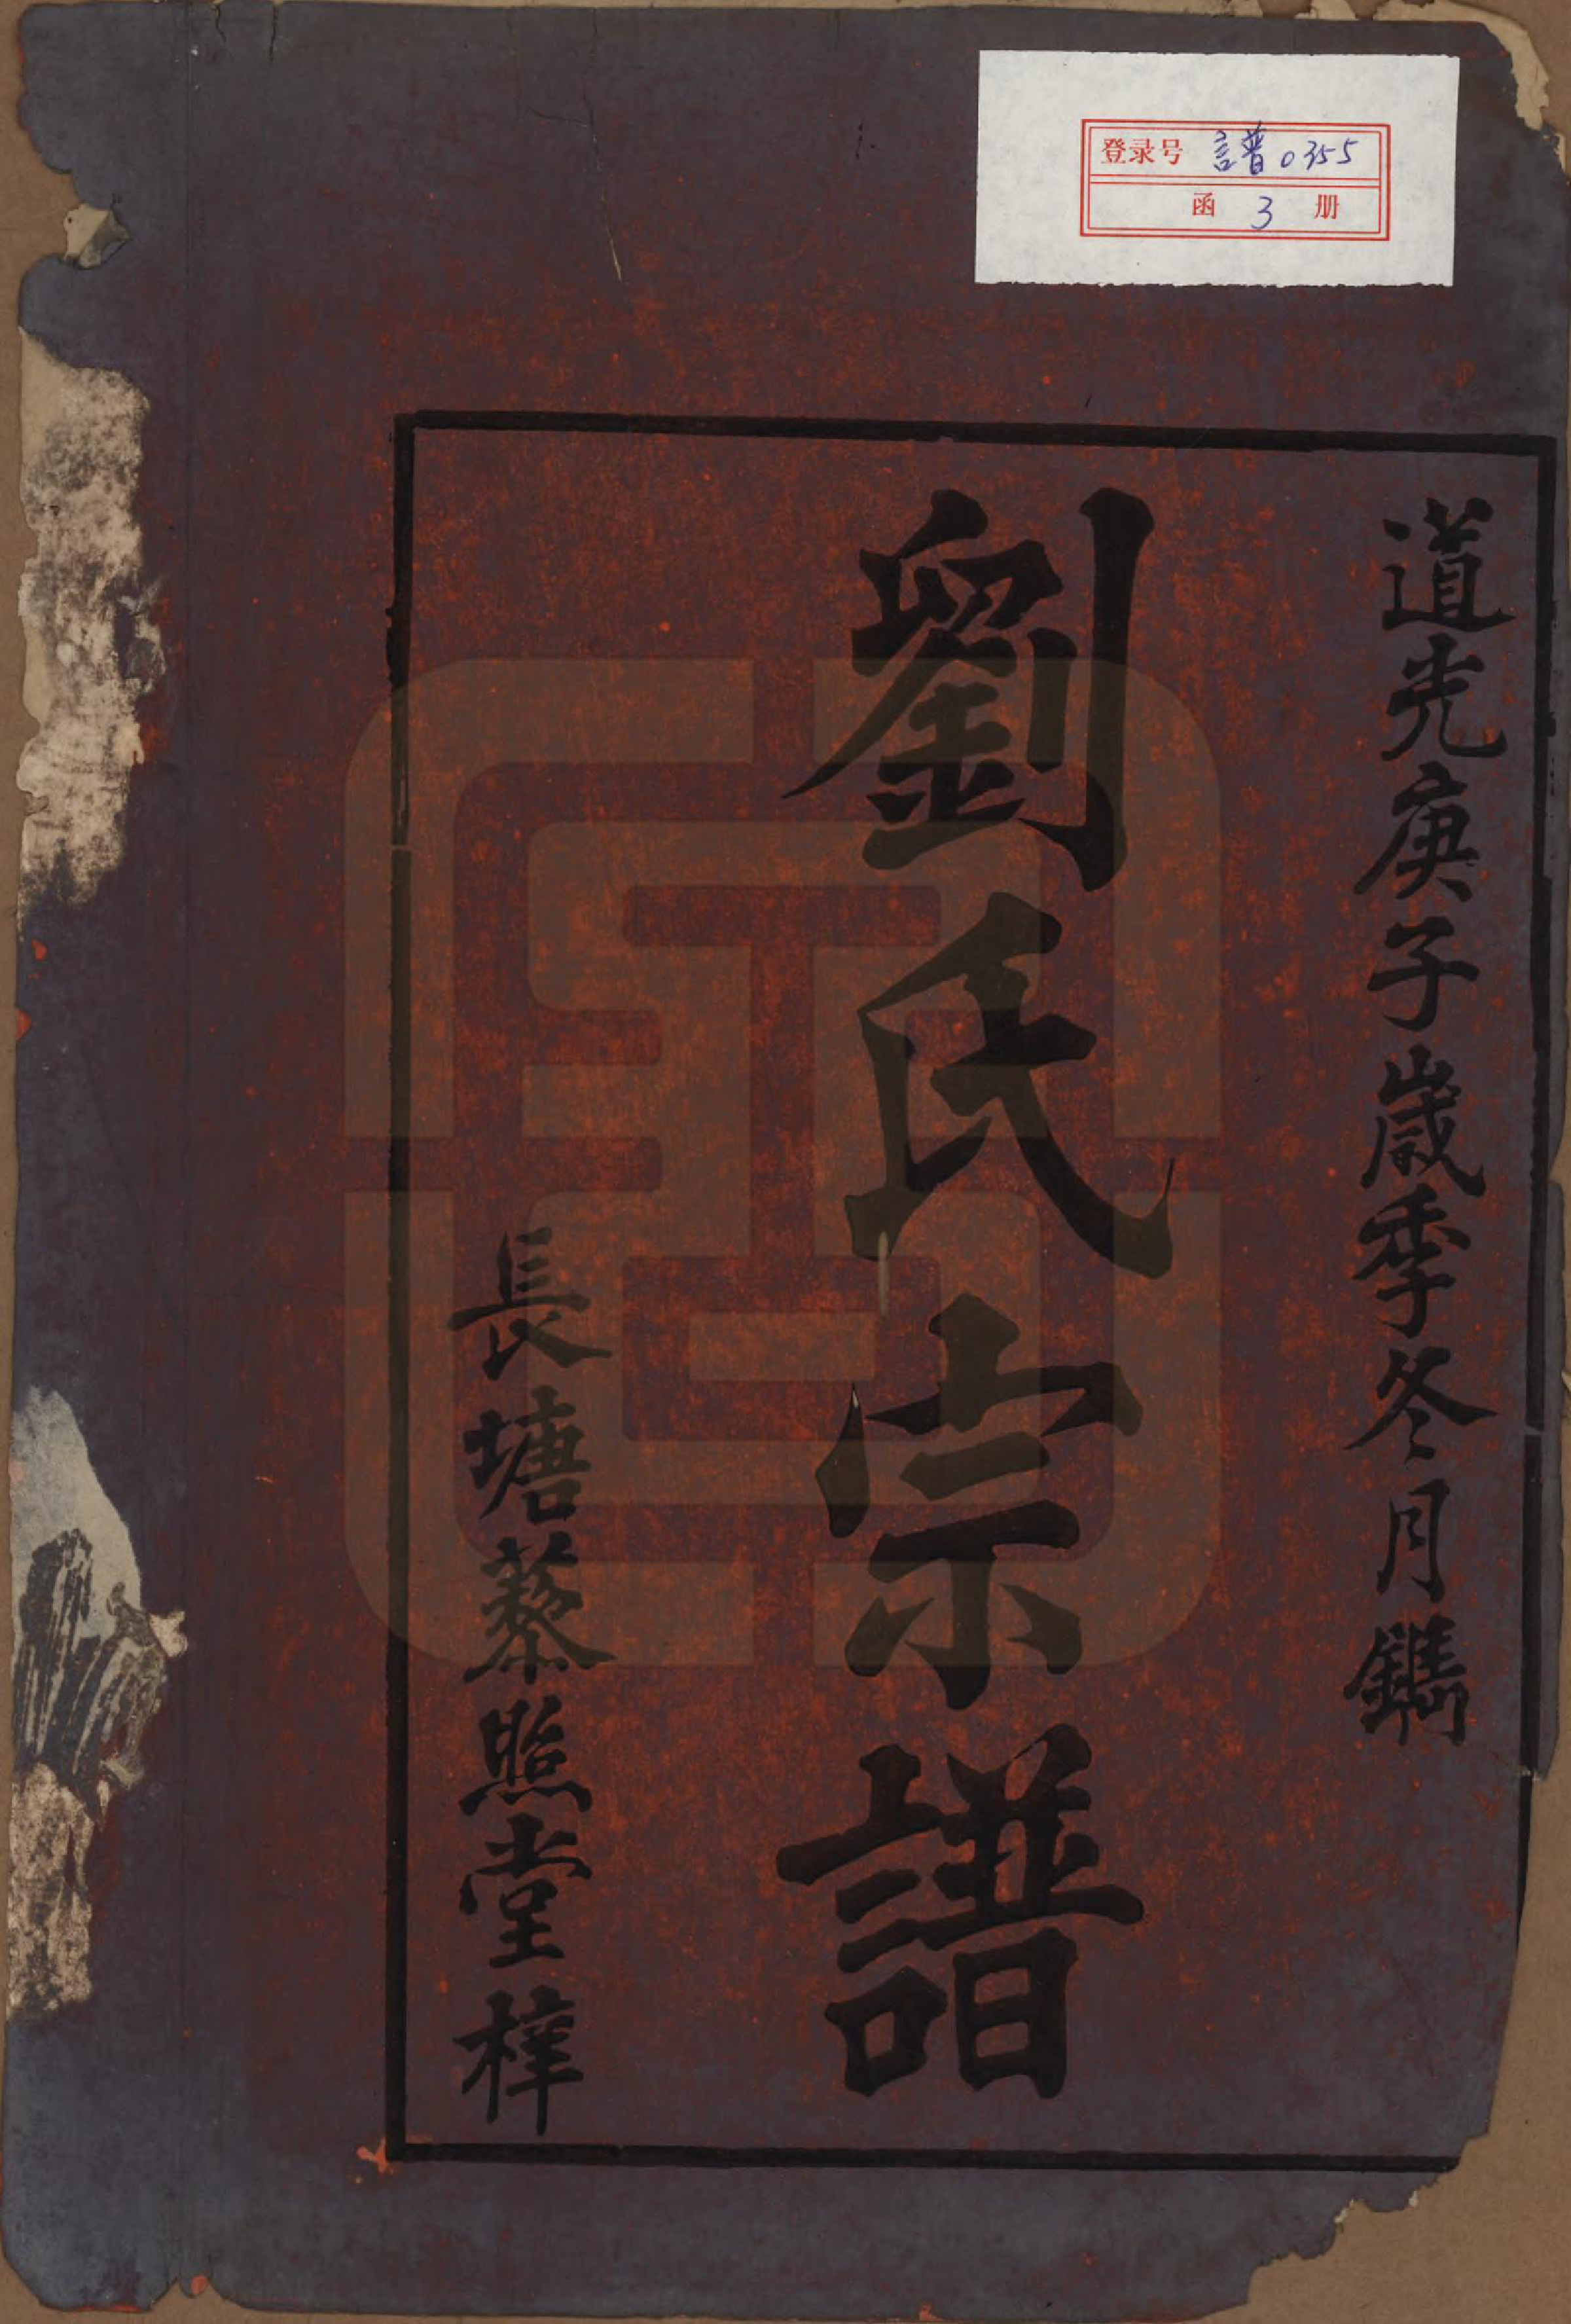 登录号 譜0355
函 3 册
道光庚子歲季冬月鐫
劉氏宗譜
長塘藜照堂梓